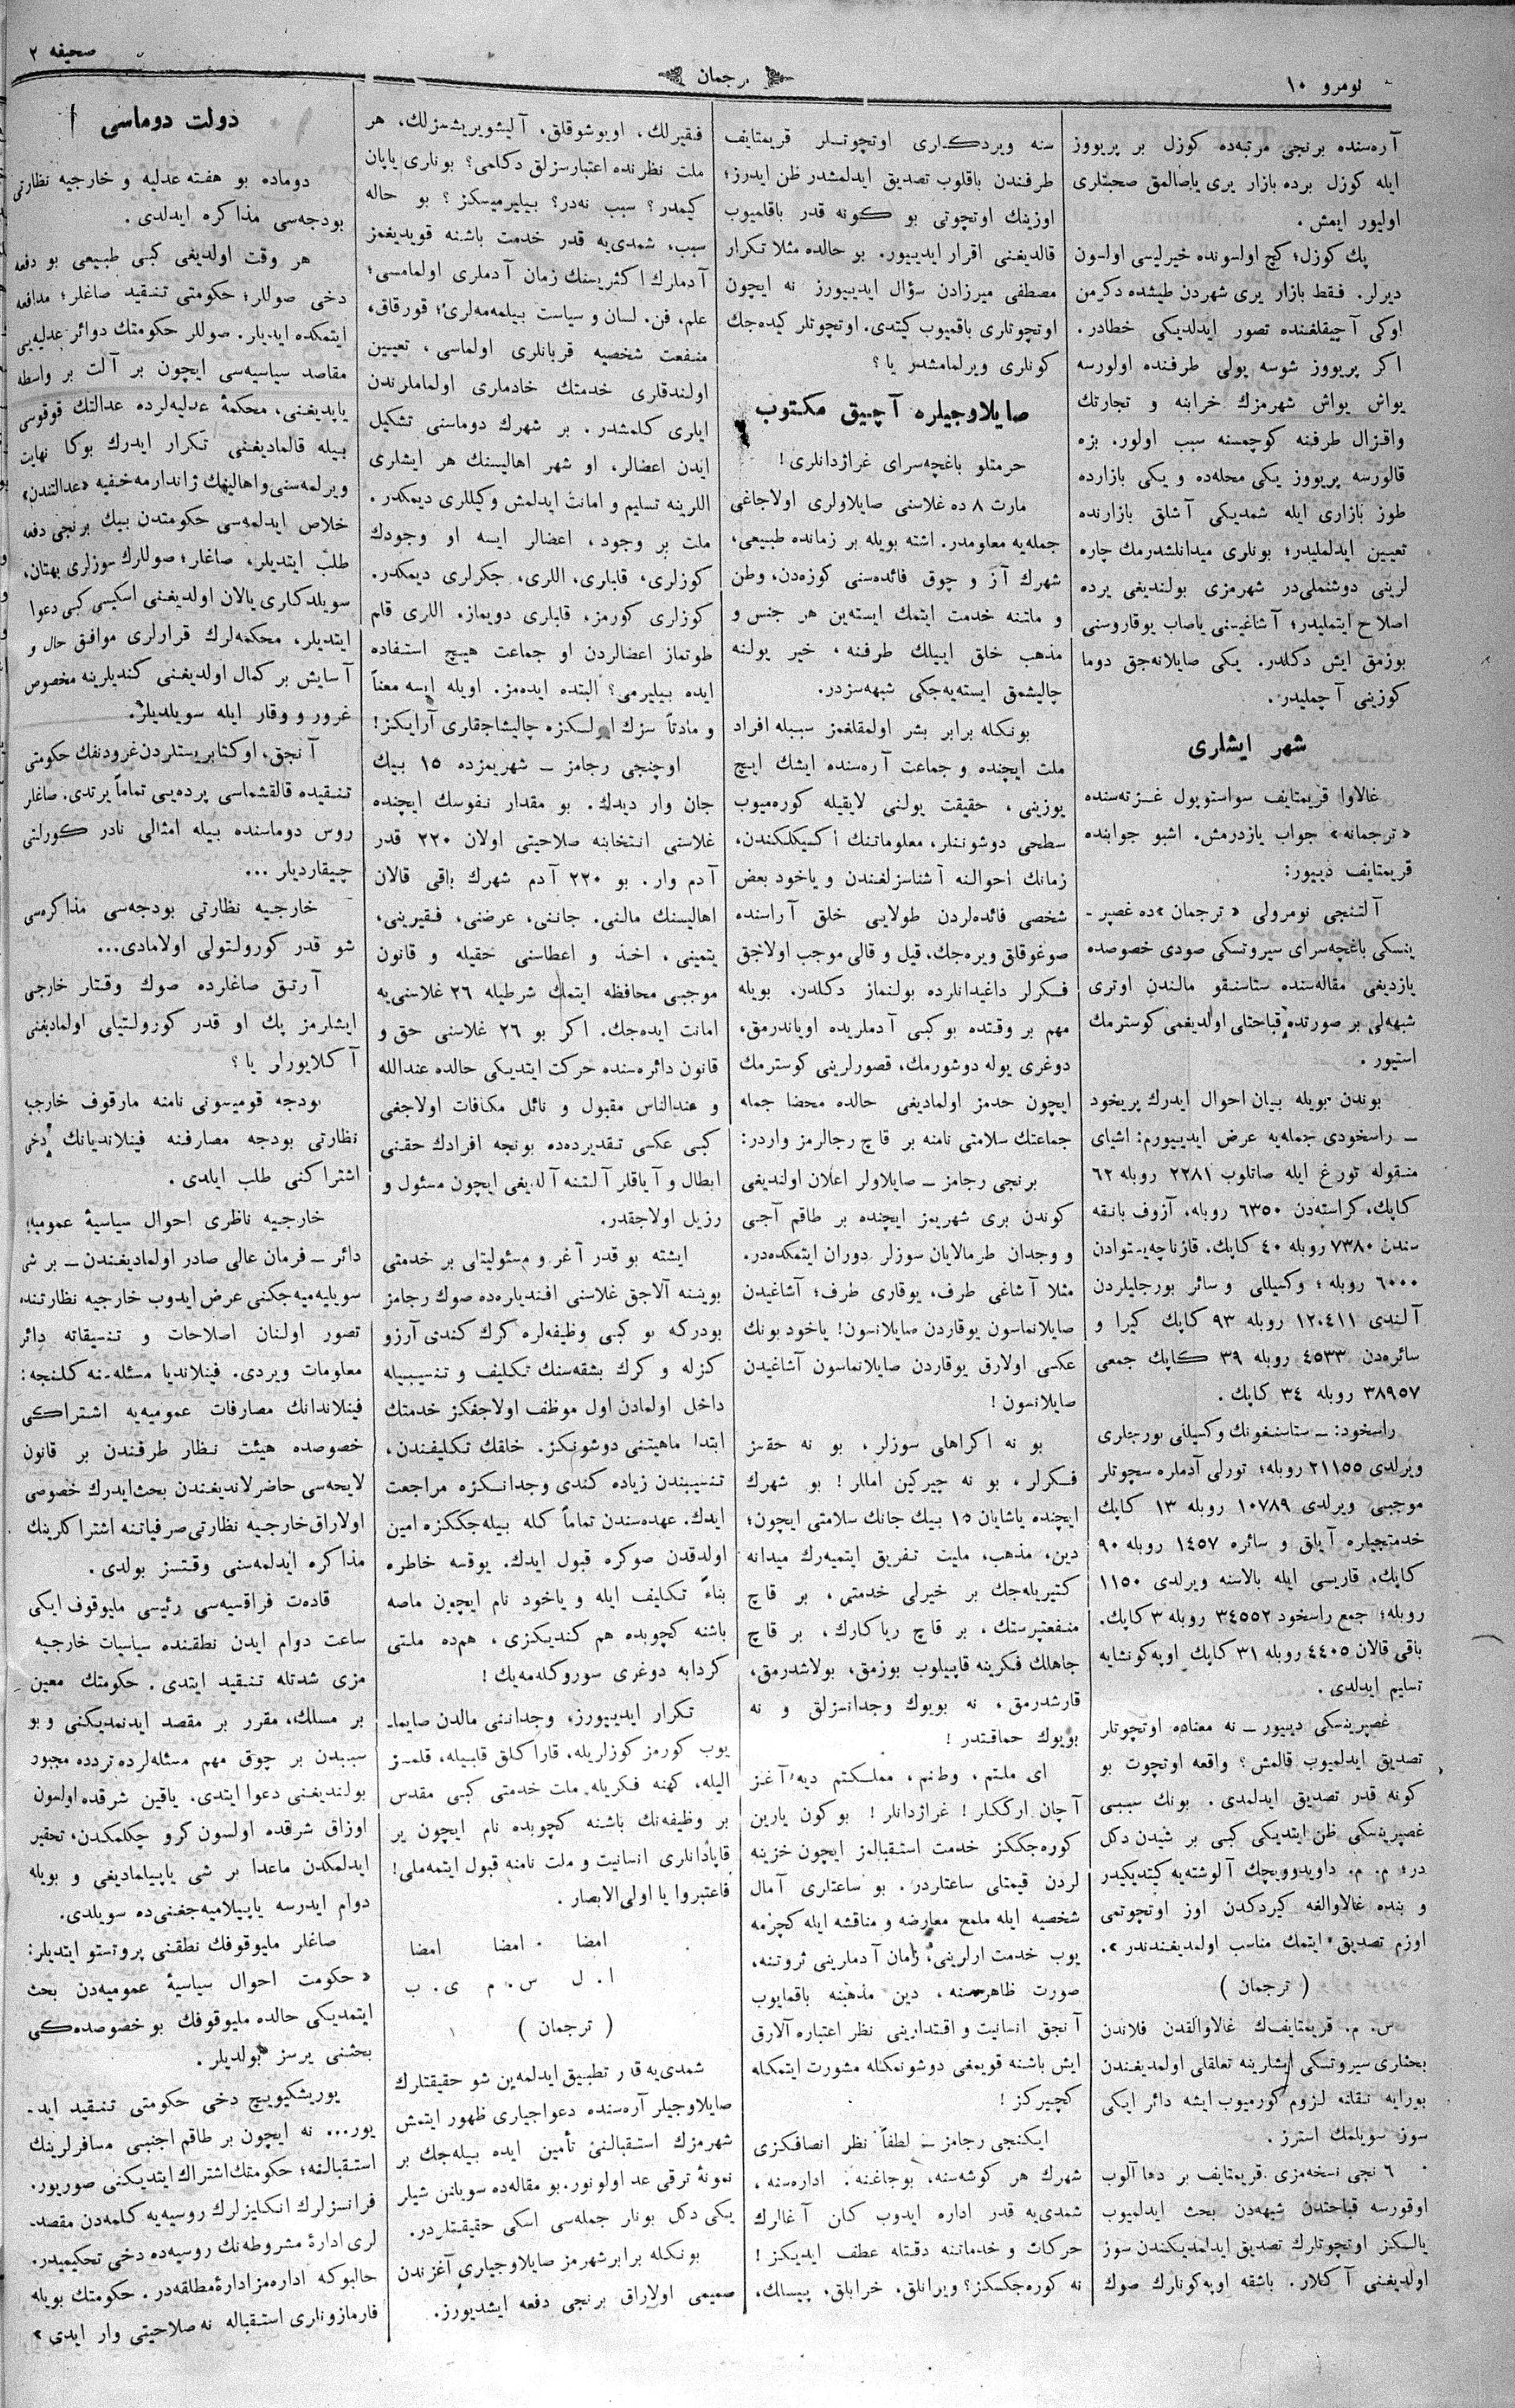 نومرو ١٠
ترجمان
صحيفه ٢
آره‌سنده برنجى مرتبه‌ده كوزل بر پريووز
ايله كوزل برده بازار يرى ياپصالمق صحبتلرى
اوليور ايمش .
پك كوزل؛ كچ اولسونده خيرليسى اولسون
ديرلر. فقط بازار يرى شهردن طيشده دكرمن
اوكى آچيقلغنده تصور ايدلديكى خطادر.
اكر پريووز شوسه يولى طرفنده اولورسه
يواش يواش شهرمزك خرابنه و تجارتك
واقزال طرفنه كوچمسنه سبب اولور. بزه
قالورسه پريووز يكى محله‌ده و يكى بازارده
طوز بازارى ايله شمديكى آشلق بازارنده
تعيين ايدلمليدر؛ بونلرى ميدانلشدرمك چاره
لرينى دوشنملى‌در شهرمزى بولنديغى يرده
اصلاح ايتمليدر؛ آشاغيسنى ياصاب يوقاروسنى
بوزمق ايش دكلدر. يكى صايلانه‌جق دوما
كوزينى آچمليدر.
شهر ايشلرى
غالاوا قريمتايف سواستوپول غزته‌سنده
«ترجمانه» جواب يازدرمش. اشبو جوابنده
قريمتايف دييور:
آلتنجى نومرولى «ترجمان»ده غصپر-
ينسكى باغچه‌سراى سيروتسكى صودى خصوصده
يازديغى مقاله‌سنده ستاسنقو مالندن اوترى
شبهه‌لى بر صورتده قباحتلى اولديغمى كوسترمك
استيور .
بوندن بويله بيان احوال ايدرك پريخود
ــ راسخودى جمله‌يه عرض ايدييورم: اشياى
منقوله تورغ ايله صاتلوب ٢٢٨١ روبله ٦٢
كاپك، كراسته‌دن ٦٣٥٠ روبله، آزوف بانقه
سندن ٧٣٨٠ روبله ٤٠ كاپك، قازناچه‌يستوادن
٦٠٠٠ روبله؛ وكسيللى و سائر بورجليلردن
آلندى ١٢٠٤١١ روبله ٩٣ كاپك كيرا و
سائره‌دن ٤٥٣٣ روبله ٣٩ كاپك جمعى
٣٨٩٥٧ روبله ٣٤ كاپك .
راسخود: ــ ستاسنغونك وكسيللى بورجلرى
ويرلدى ٢١١٥٥ روبله؛ تورلى آدملره سچوتلر
موجبى ويرلدى ١٠٧٨٩ روبله ١٣ كاپك
خدمتجيلره آيلق و سائره ١٤٥٧ روبله ٩٠
كاپك، قاريسى ايله بالاسنه ويرلدى ١١٥٠
روبله؛ جمع راسخود ٣٤٥٥٢ روبله ٣ كاپك.
باقى قالان ٤٤٠٥ روبله ٣١ كاپك اوپه‌كونشايه
تسليم ايدلدى .
غصپرينسكى دييور ــ نه معناده اوتچوتلر
تصديق ايدلميوب قالمش؟ واقعه اوتچوت بو
كونه قدر تصديق ايدلمدى . بونك سببى
غصپرينسكى ظن ايتديكى كبى بر شيدن دكل
در؛ م. م. داويدوويچك آلوشته‌يه كيتديكيدر
و بنده غالاوالغه كيردكدن اوز اوتچوتمى
اوزم تصديق ايتمك مناسب اولمديغندندر».
( ترجمان )
س. م. قريمتايفك غالاوالقدن فلاندن
بحثلرى سيروتسكى ايشلرينه تعلقلى اولمديغندن
بورايه نقلنه لزوم كورميوب ايشه دائر ايكى
سوز سويلمك استرز .
٦ نجى نسخه‌مزى قريمتايف بر دها آلوب
اوقورسه قباحتدن شبهه‌دن بحث ايدلميوب
يالكز اوتچوتلرك تصديق ايدلمديكندن سوز
اولديغنى آكلار. باشقه اوپه‌كونلرك صوك
سنه ويردكلرى اوتچوتلر قريمتايف
طرفندن باقلوب تصديق ايدلمشدر ظن ايدرز؛
اوزينك اوتچوتى بو كونه قدر باقلميوب
قالديغنى اقرار ايدييور. بو حالده مثلا تكرار
مصطفى ميرزادن سؤال ايدييورز نه ايچون
اوتچوتلرى باقميوب كيتدى. اوتچوتلر كيده‌جك
كونلرى ويرلمامشدر يا؟
صايلاوجيلره آچيق مكتوب
حرمتلو باغچه‌سراى غراژدانلرى!
مارت ٨ ده غلاسنى صايلاولرى اولاجاغى
جمله‌يه معلومدر. اشته بويله بر زمانده طبيعى،
شهرك آز و چوق فائده‌سنى كوزه‌دن، وطن
و ملتنه خدمت ايتمك ايسته‌ين هر جنس و
مذهب خلق اييلك طرفنه، خير يولنه
چاليشمق ايسته‌يه‌جكى شبهه‌سزدر.
بونكله برابر بشر اولمقلغمز سببله افراد
ملت ايچنده و جماعت آره‌سنده ايشك ايچ
يوزينى، حقيقت يولنى لايقيله كوره‌ميوب
سطحى دوشوننلر، معلوماتنك اكسيكلكندن،
زمانك احوالنه آشناسزلغندن و ياخود بعض
شخصى فائده‌لردن طولايى خلق آراسنده
صوغوقلق ويره‌جك، قيل و قالى موجب اولاجق
فكرلر داغيدانلرده بولنماز دكلدر. بويله
مهم بر وقتده بو كبى آدملريده اوياندرمق،
دوغرى يوله دوشورمك، قصورلرينى كوسترمك
ايچون حدمز اولماديغى حالده محضا جمله
جماعتك سلامتى نامنه بر قاچ رجالرمز واردر:
برنجى رجامز ــ صايلاولر اعلان اولنديغى
كوندن برى شهريمز ايچنده بر طاقم آجى
و وجدان طرمالايان سوزلر دوران ايتمكده‌در.
مثلا آشاغى طرف، يوقارى طرف؛ آشاغيدن
صايلانماسون يوقاردن صايلانسون! ياخود بونك
عكسى اولارق يوقاردن صايلانماسون آشاغيدن
صايلانسون!
بو نه اكراهلى سوزلر، بو نه حقسز
فكرلر، بو نه چيركين امللر! بو شهرك
ايچنده ياشايان ١٥ بيك جانك سلامتى ايچون؛
دين، مذهب، مليت تفريق ايتميه‌رك ميدانه
كتيريله‌جك بر خيرلى خدمتى، بر قاچ
منفعتپرستك، بر قاچ رياكارك، بر قاچ
جاهلك فكرينه قاپيلوب بوزمق، بولاشدرمق،
قارشدرمق، نه بويوك وجدانسزلق و نه
بويوك حماقتدر!
اى ملتم، وطنم، مملكتم ديه آغز
آچان ارككلر! غراژدانلر! بو كون يارين
كوره‌جككز خدمت استقبالمز ايچون خزينه
لردن قيمتلى ساعتلردر. بو ساعتلرى آمال
شخصيه ايله ملمع معارضه و مناقشه ايله كچرمه
يوب خدمت ارلرينى، زمان آدملرينى ثروتنه،
صورت ظاهرسنه، دين مذهبنه باقمايوب
آنجق انسانيت و اقتدارينى نظر اعتباره آلارق
ايش باشنه قويمغى دوشونمكله مشورت ايتمكله
كچيركز!
ايكنجى رجامز ــ لطفاً نظر انصافكزى
شهرك هر كوشه‌سنه، بوجاغنه. اداره‌سنه،
شمدى‌يه قدر اداره ايدوب كلن آغالرك
حركات و خدماتنه دقتله عطف ايديكز!
نه كوره‌جكسكز؟ ويرانلق، خرابلق، پيسلك،
فقيرلك، اويوشوقلق، آليشويريشسزلك، هر
ملت نظرنده اعتبارسزلق دكلمى؟ بونلرى ياپان
كيمدر؟ سبب نه‌در؟ بيليرميسكز؟ بو حاله
سبب، شمدى‌يه قدر خدمت باشنه قويديغمز
آدملرك اكثريسنك زمان آدملرى اولمامسى؛
علم، فن. لسان و سياست بيلمه‌مه‌لرى؛ قورقاق،
منفعت شخصيه قربانلرى اولماسى، تعيين
اولندقلرى خدمتك خادملرى اولماملرندن
ايلرى كلمشدر. بر شهرك دوماسنى تشكيل
ايدن اعضالر، او شهر اهاليسنك هر ايشلرى
اللرينه تسليم و امانت ايدلمش وكيللرى ديمكدر.
ملت بر وجود، اعضالر ايسه او وجودك
كوزلرى، قلبلرى، اللرى، جكرلرى ديمكدر.
كوزلرى كورمز، قلبلرى دويماز، اللرى قلم
طوتماز اعضالردن او جماعت هيچ استفاده
ايده بيليرمى؟ البتده ايده‌مز. اويله ايسه معناً
و مادتاً سزك اولكزه چاليشاجقلرى آرايكز!
اوچنجى رجامز ــ شهريمزده ١٥ بيك
جان وار ديدك. بو مقدار نفوسك ايچنده
غلاسنى انتخابنه صلاحيتى اولان ٢٢٠ قدر
آدم وار. بو ٢٢٠ آدم شهرك باقى قالان
اهاليسنك مالنى. جاننى، عرضنى، فقيرينى،
يتمينى، اخذ و اعطاسنى حقيله و قانون
موجبى محافظه ايتمك شرطيله ٢٦ غلاسنى‌يه
امانت ايده‌جك. اكر بو ٢٦ غلاسنى حق و
قانون دائره‌سنده حركت ايتديكى حالده عندالله
و عندالناس مقبول و نائل مكافات اولاجغى
كبى عكسى تقديرده‌ده بونجه افرادك حقنى
ابطال و آياقلر آلتنه آلديغى ايچون مسئول و
رزيل اولاجقدر.
ايشته بو قدر آغر و مسئوليتلى بر خدمتى
بوينه آلاجق غلاسنى افنديلره‌ده صوك رجامز
بودركه بو كبى وظيفه‌لره كرك كندى آرزو
كزله و كرك بشقه‌سنك تكليف و تنسيبيله
داخل اولمادن اول موظف اولاجغكز خدمتك
ابتدا ماهيتنى دوشونكز. خلقك تكليفندن،
تنسيبندن زياده كندى وجدانكزه مراجعت
ايدك. عهده‌سندن تماماً كله بيله‌جككزه امين
اولدقدن صوكره قبول ايدك. يوقسه خاطره
بناءً تكليف ايله و ياخود نام ايچون ماصه
باشنه كچوبده هم كنديكزى، هم‌ده ملتى
كردابه دوغرى سوروكلمه‌يك!
تكرار ايدييورز، وجداننى مالدن صايما-
يوب كورمز كوزلريله، قاراكلق قلبيله، قلمسز
اليله، كهنه فكريله ملت خدمتى كبى مقدس
بر وظيفه‌نك باشنه كچوبده نام ايچون ير
قاپادانلرى انسانيت و ملت نامنه قبول ايتمه‌ملى!
فاعتبروا يا اولى الابصار .
امضا امضا امضا
ا. ل س. م ى. ب
( ترجمان )
شمدى‌يه قدر تطبيق ايدلمه‌ين شو حقيقتلرك
صايلاوجيلر آره‌سنده دعواجيلرى ظهور ايتمش
شهرمزك استقبالنى تأمين ايده بيله‌جك بر
نمونهٔ ترقى عد اولونور. بو مقاله‌ده سويلنن شيلر
يكى دكل بونلر جمله‌سى اسكى حقيقتلردر.
بونكله برابر شهرمز صايلاوجيلرى آغزندن
صميمى اولاراق برنجى دفعه ايشديورز.
دولت دوماسى
دوماده بو هفته عدليه و خارجيه نظارتى
بودجه‌سى مذاكره ايدلدى .
هر وقت اولديغى كبى طبيعى بو دفعه
دخى صوللر؛ حكومتى تنقيد صاغلر؛ مدافعه
ايتمكده ايديلر. صوللر حكومتك دوائر عدليه‌يى
مقاصد سياسيه‌سى ايچون بر آلت بر واسطه
ياپديغنى، محكمهٔ عدليه‌لرده عدالتك قوقوسى
بيله قالماديغنى تكرار ايدرك بوكا نهايت
ويرلمه‌سنى و اهالينك ژاندارمه خفيه «عدالتندن»
خلاص ايدلمه‌سى حكومتدن بيك برنجى دفعه
طلب ايتديلر، صاغلر؛ صوللرك سوزلرى بهتان،
سويلدكلرى يالان اولديغنى اسكيسى كبى دعوا
ايتديلر، محكمه‌لرك قرارلرى موافق حال و
آسايش بر كمال اولديغنى كنديلرينه مخصوص
غرور و وقار ايله سويلديلر.
آنجق، اوكتابريستلردن غرودنفك حكومتى
تنقيده قالقشماسى پرده‌يى تماماً يرتدى. صاغلر
روس دوماسنده بيله امثالى نادر كورلتى
چيقارديلر ...
خارجيه نظارتى بودجه‌سى مذاكره‌سى
شو قدر كورولتولى اولامادى...
آرتق صاغلرده صوك وقتلر خارجى
ايشلرمز پك او قدر كورولتيلى اولماديغنى
آكلايورلر يا؟
بودجه قوميسونى نامنه مارقوف خارجيه
نظارتى بودجه مصارفنه فينلانديانك دخى
اشتراكنى طلب ايلدى .
خارجيه ناظرى احوال سياسيهٔ عموميه؛
دائر ــ فرمان عالى صادر اولماديغندن ــ بر شى
سويليه‌ميه‌جكنى عرض ايدوب خارجيه نظارتنده
تصور اولنان اصلاحات و تنسيقاته دائر
معلومات ويردى. فينلانديا مسئله‌سنه كلنجه:
فينلاندانك مصارفات عموميه‌يه اشتراكى
خصوصده هيئت نظار طرفندن بر قانون
لايحه‌سى حاضرلانديغندن بحث ايدرك خصوصى
اولاراق خارجيه نظارتى صرفياتنه اشتراكلرينك
مذاكره ايدلمه‌سنى وقتسز بولدى .
قادت فراقسيه‌سى رئيسى مليوقوف ايكى
ساعت دوام ايدن نطقنده سياسيات خارجيه
مزى شدتله تنقيد ايتدى. حكومتك معين
بر مسلك، مقرر بر مقصد ايدنمديكنى و بو
سببدن بر چوق مهم مسئله‌لرده تردده مجبور
بولنديغنى دعوا ايتدى. ياقين شرقده اولسون
اوزاق شرقده اولسون كرو چكلمكدن، تحقير
ايدلمكدن ماعدا بر شى ياپيلماديغى و بويله
دوام ايدرسه ياپيلاميه‌جغنى‌ده سويلدى.
صاغلر مليوقوفك نطقنى پروتستو ايتديلر:
«حكومت احوال سياسيهٔ عموميه‌دن بحث
ايتمديكى حالده مليوقوفك بو خصوصده‌كى
بحثنى يرسز بولديلر .
پوريشكيويچ دخى حكومتى تنقيد ايد-
يور... نه ايچون بر طاقم اجنبى مسافرلرينك
استقبالنه؛ حكومتك اشتراك ايتديكنى صوريور.
فرانسزلرك انكليزلرك روسيه‌يه كلمه‌دن مقصد-
لرى ادارهٔ مشروطه‌نك روسيه‌ده دخى تحكيميدر.
حالبوكه اداره‌مز ادارهٔ مطلقه‌در. حكومتك بويله
فارمازونلرى استقباله نه صلاحيتى وار ايدى»